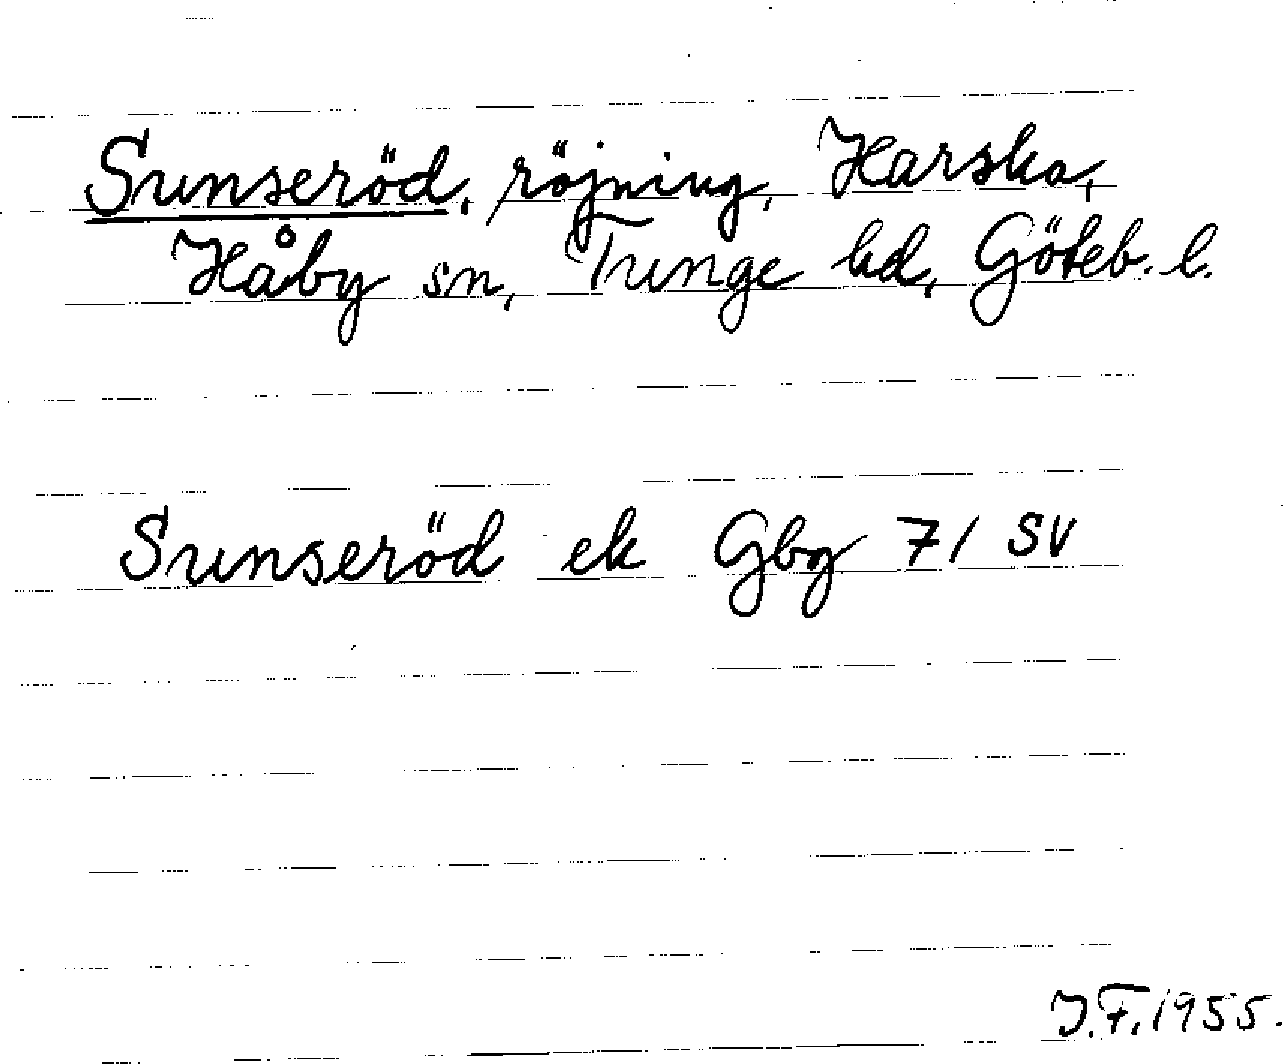 Sunseröd, röjning, Harska,
Håby sn, Tunge hd, Göteb. l.
Sunseröd ek Gbg 71 SV
J.F. 1955.